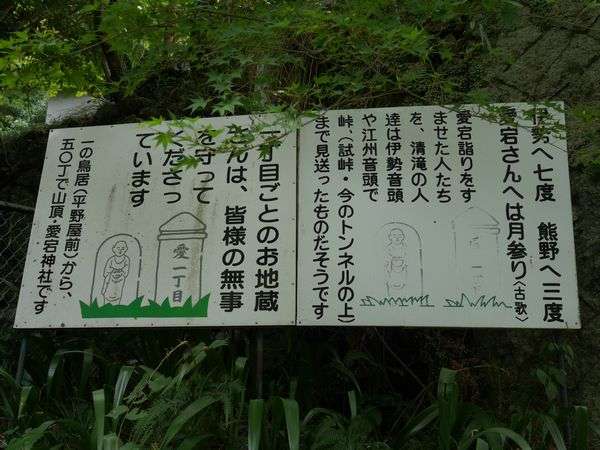 伊勢へ七度 熊野へ三度
愛宕さんへは月参り〈古歌〉
愛宕詣りをす
ませた人たち
を、清滝の人
達は伊勢音頭
や江州音頭で
峠、(試峠・今のトンネルの上)
まで見送ったものだそうです
一丁目ごとのお地蔵
さんは、皆様の無事
を守って
くださっ
ています
愛一丁目
一の鳥居(平野屋前)から、
五〇丁で山頂・愛宕神社です